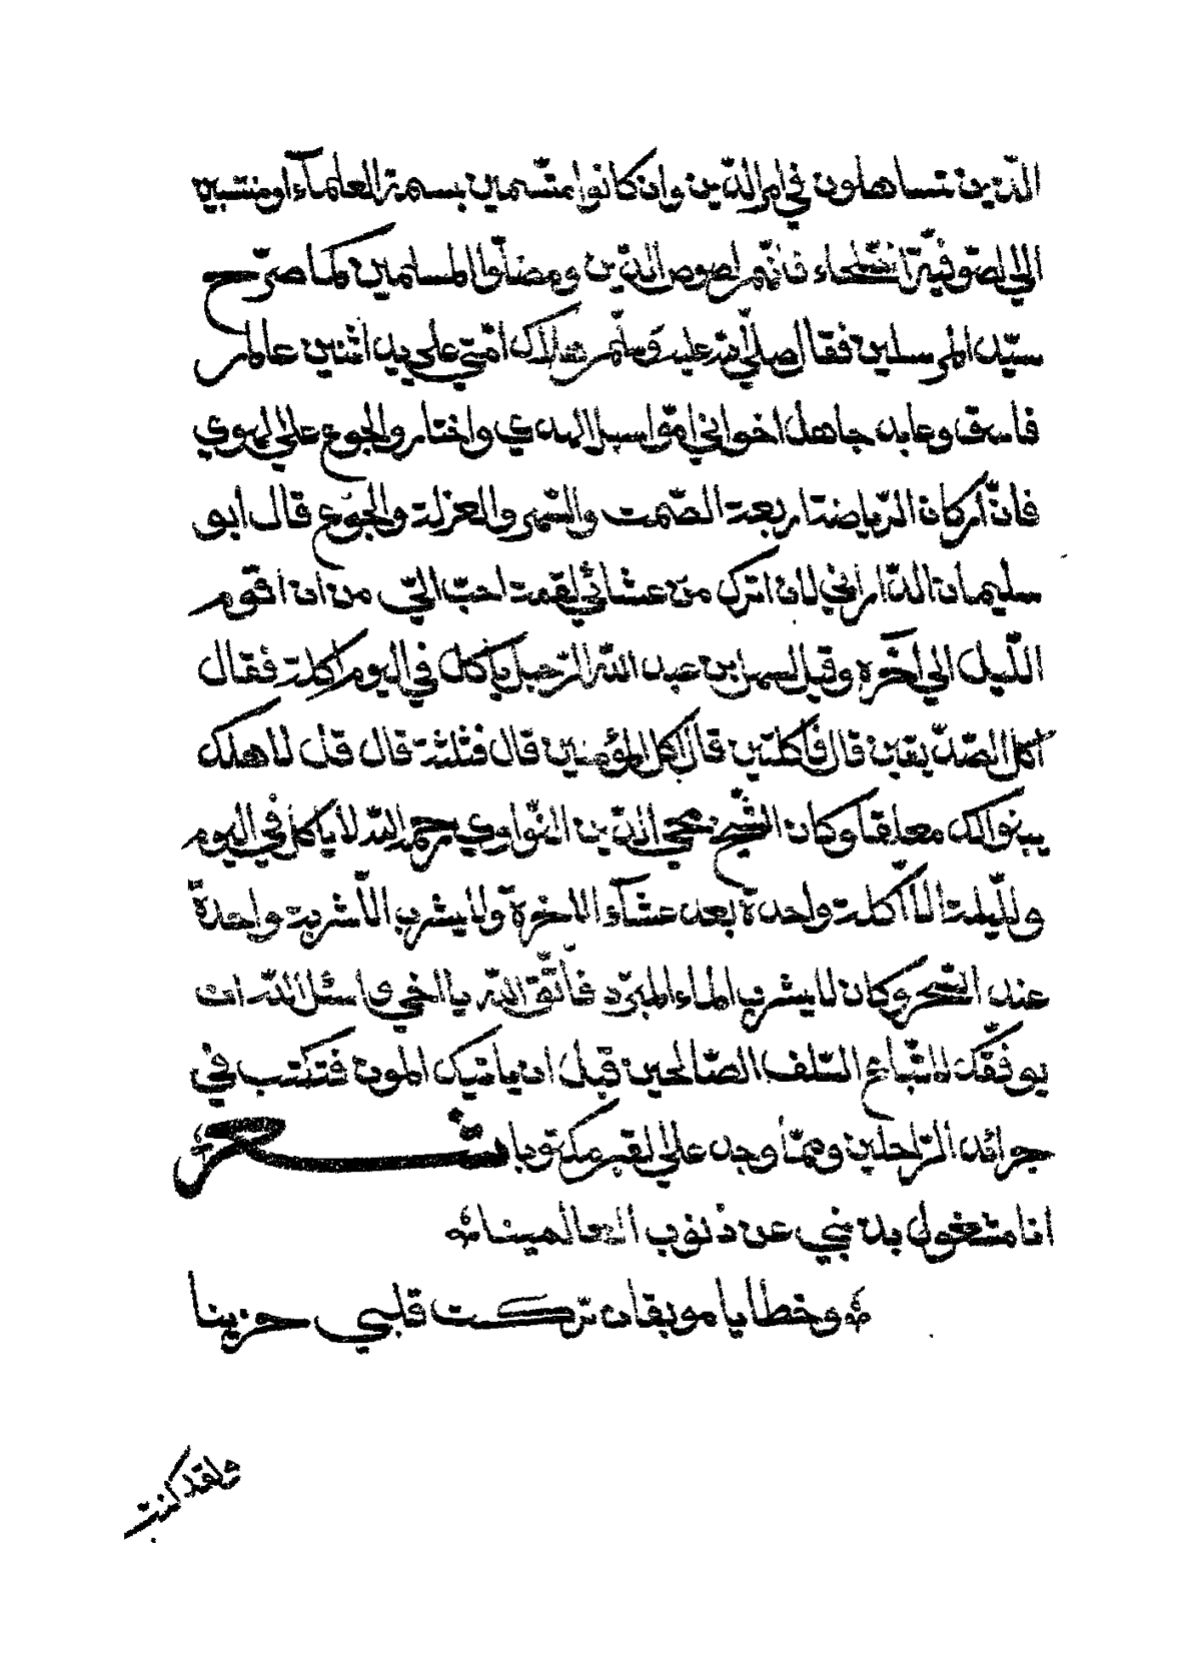 الّذين تتساهلون في امر الدّين وان كانوا متّسمين بسمة العلمآء او منتسبين
الي الصّوفيّة الصّلحاء فانّهم لصوص الدّين ومضلّوا المسلمين كما صرّح
سيّد المرسلين فقال صلّي الله عليه وسلّم هلاك امّتي علي يد اثنين عالم
فاسق وعابد جاهل اخواني امّوا سبل الهدي واختاروا الجوع علي الهوي
فانّ اركان الرّياضة اربعة الصّمت والسّهر والعزلة والجوع قال ابو
سليمان الدّاراني لان اترك من عشائي لقمة احبّ اليّ من ان اقوم
اللّيل الي آخره وقيل لسهل بن عبد الله الرّجل يأكل في اليوم اكلة فقال
اكل الصّدّيقين قال فاكلتين قال اكل المؤمنين قال فثلثة قال قل لاهلك
يبنوا لك معلفا وكان الشّيخ محي الدّين النّواوي رحمه الله لا ياكل في اليوم
واللّيلة الّا اكلة واحدة بعد عشآء الاخرة ولا يشرب الّا شربة واحدة
عند السّحر وكان لا يشرب الماء المبرّد فاتّق الله يا اخي واسئل الله ان
يوفّقك لاتّباع السّلف الصّالحين قبل ان ياتيك المون فتكتب في
جرائد الرّاحلين وممّا وجد علي القبر مكتوبا شعر
انا مشغول بذنبي عن ذنوب العالمينا
وخطايا موبقات تركت قلبي حزينا
ولقد كنت